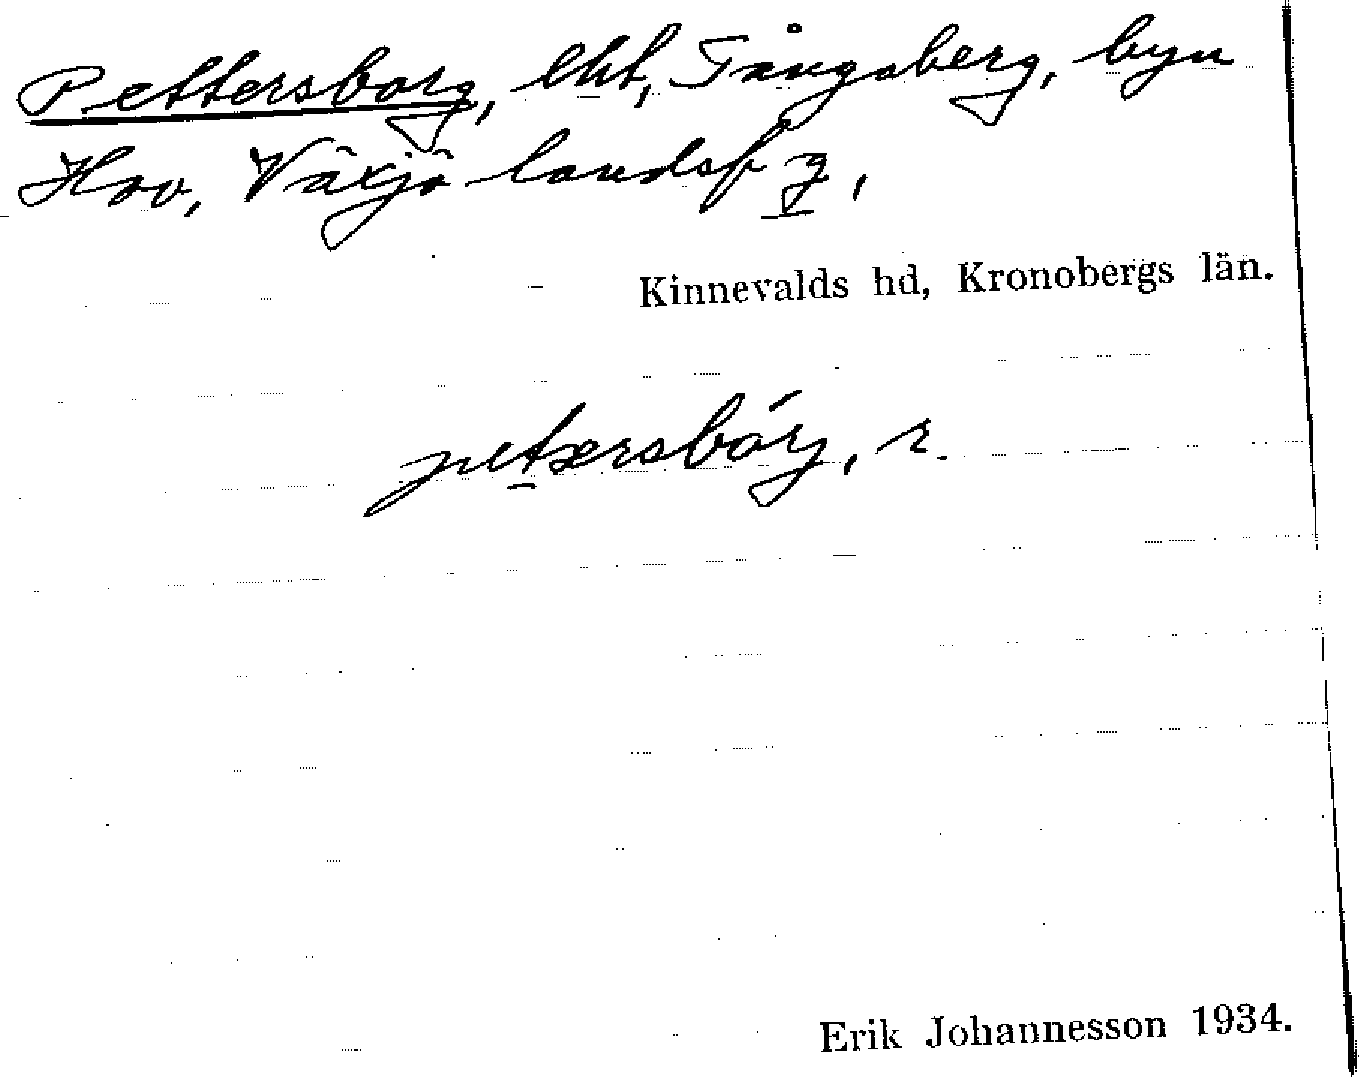 Pettersborg, lht, Tångaberg, byn
Hov, Växjö landsf g,
Kinnevalds hd, Kronobergs län.
petersbórg, r.
Erik Johannesson 1934.